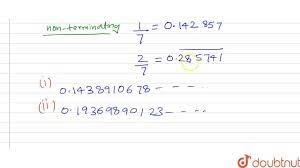 non-terminating 1/7 = 0.142857
2/7 = 0.285741
(i) 0.1438910678 - - - -
(ii) 0.19369890123 - - - -
doubtnut